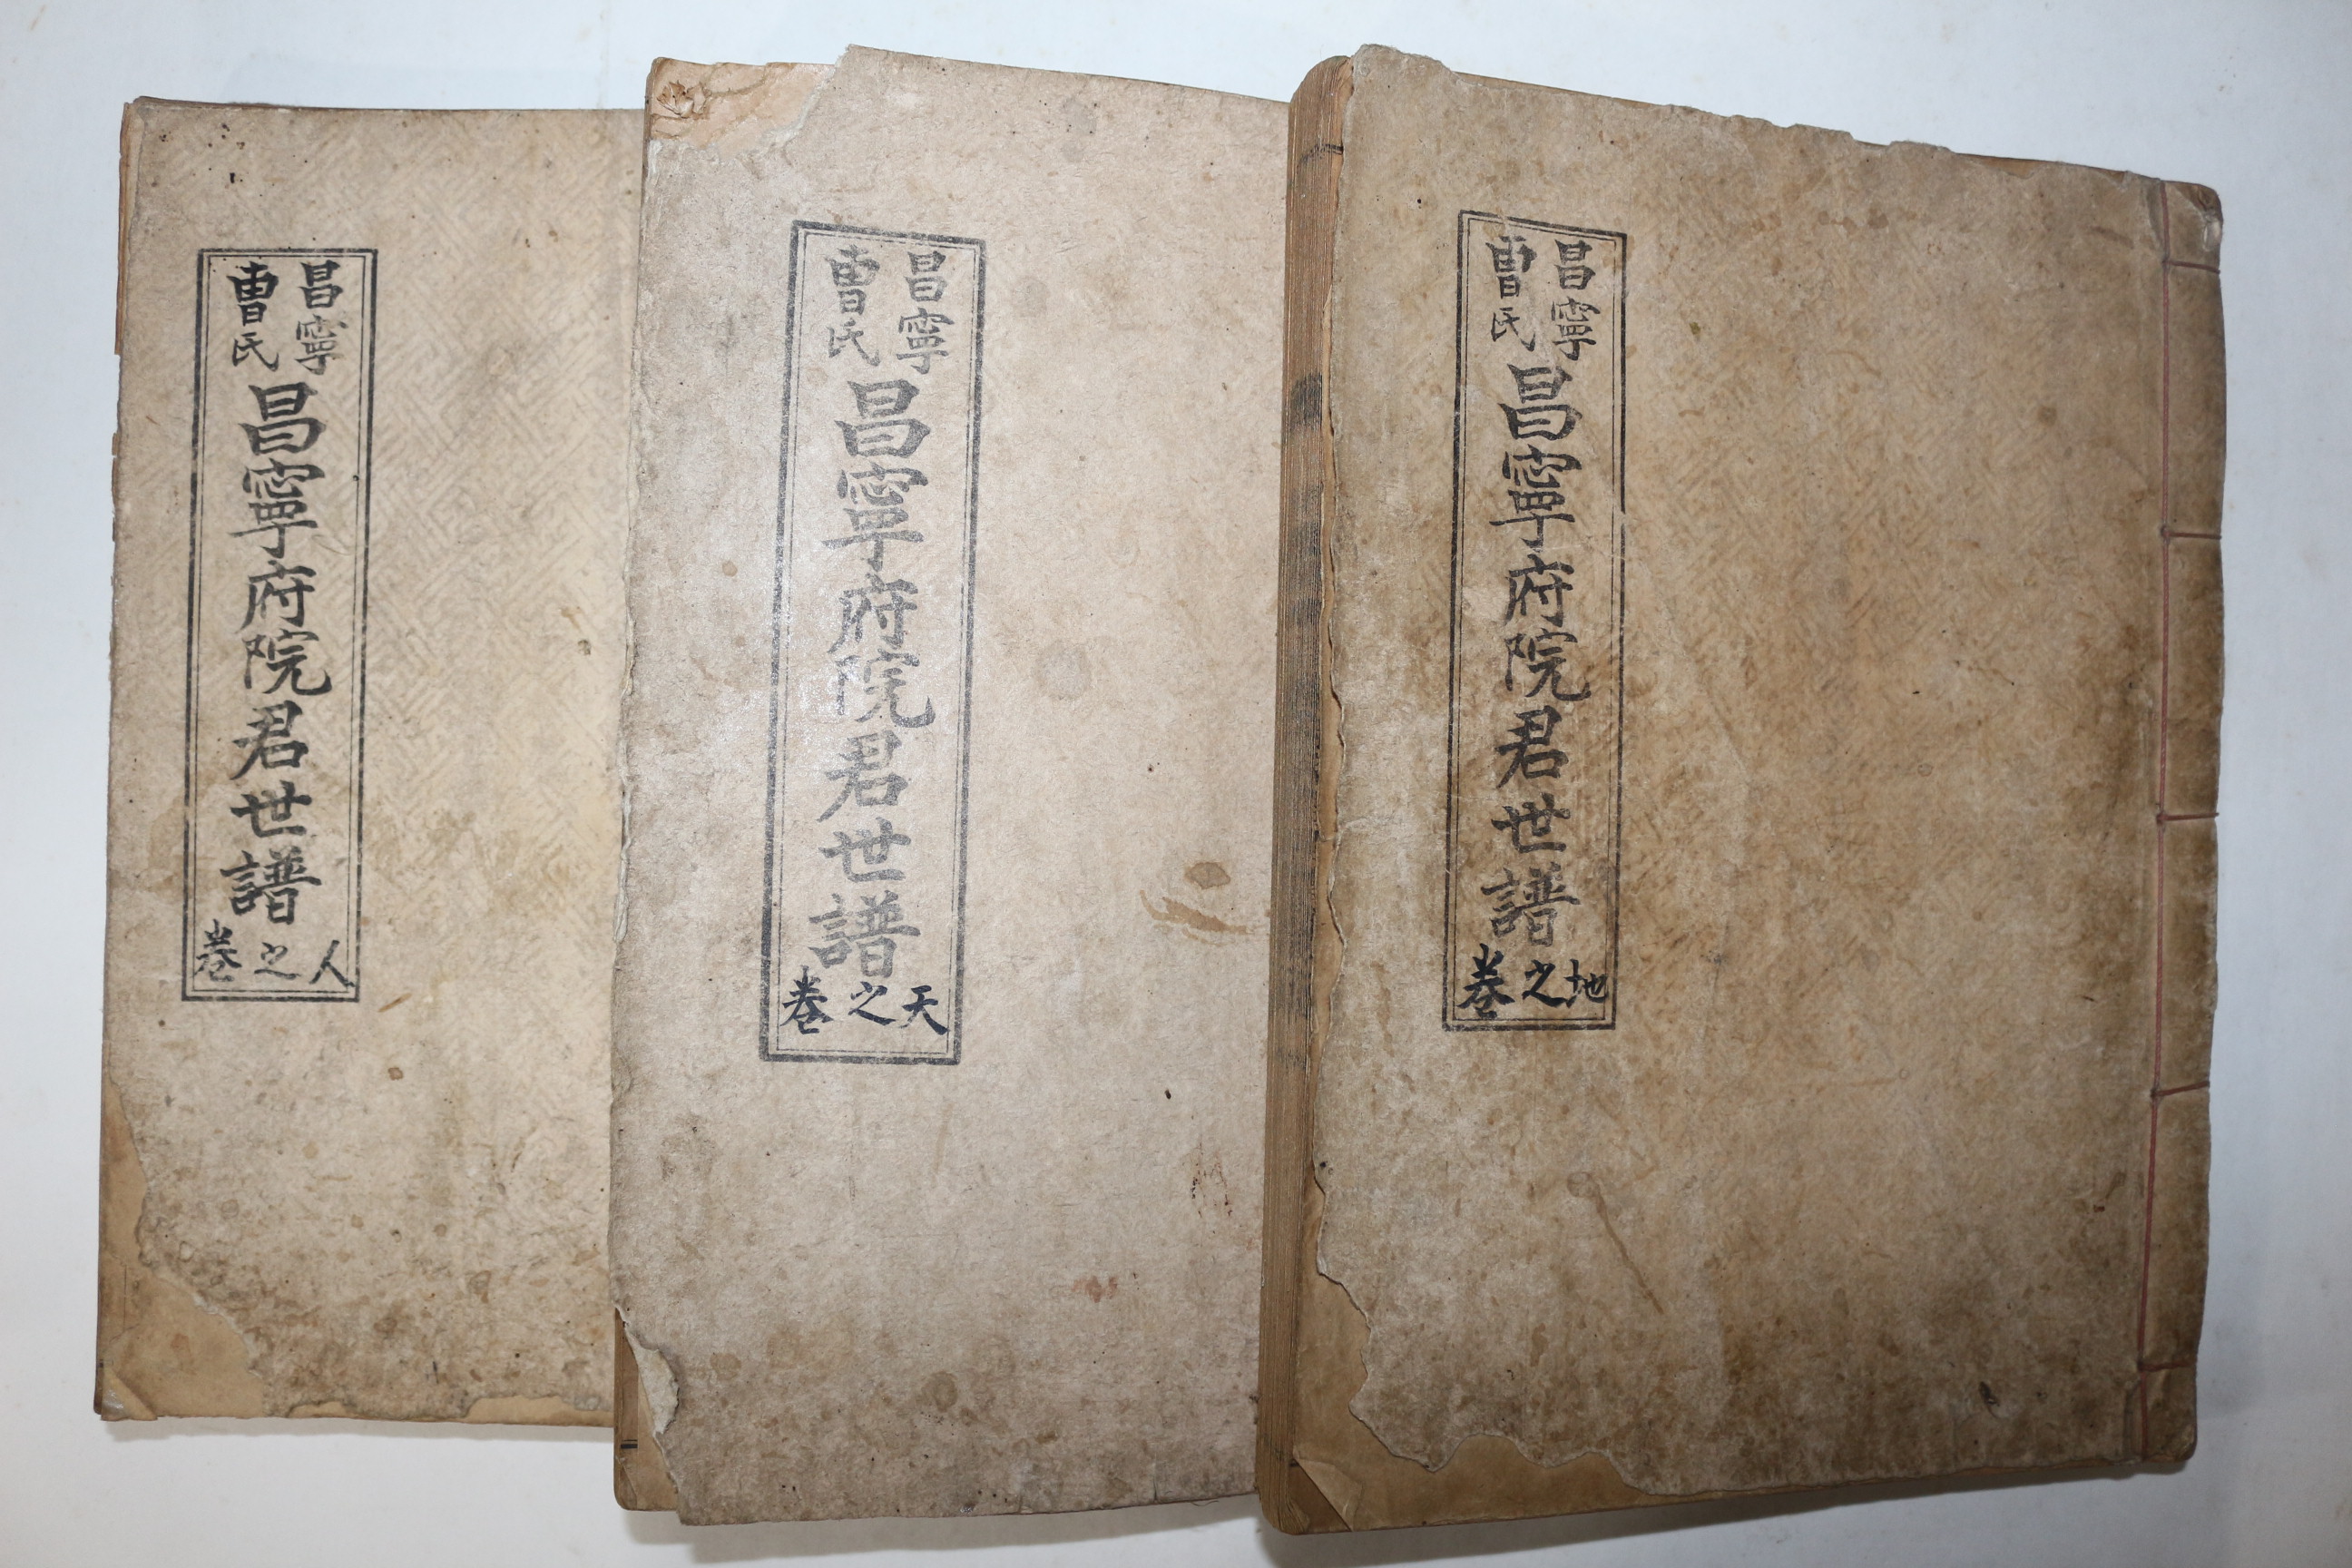 昌寧
曺氏
昌寧府院君世譜
卷之人
昌寧
曺氏
昌寧府院君世譜
卷之天
昌寧
曺氏
昌寧府院君世譜
卷之地